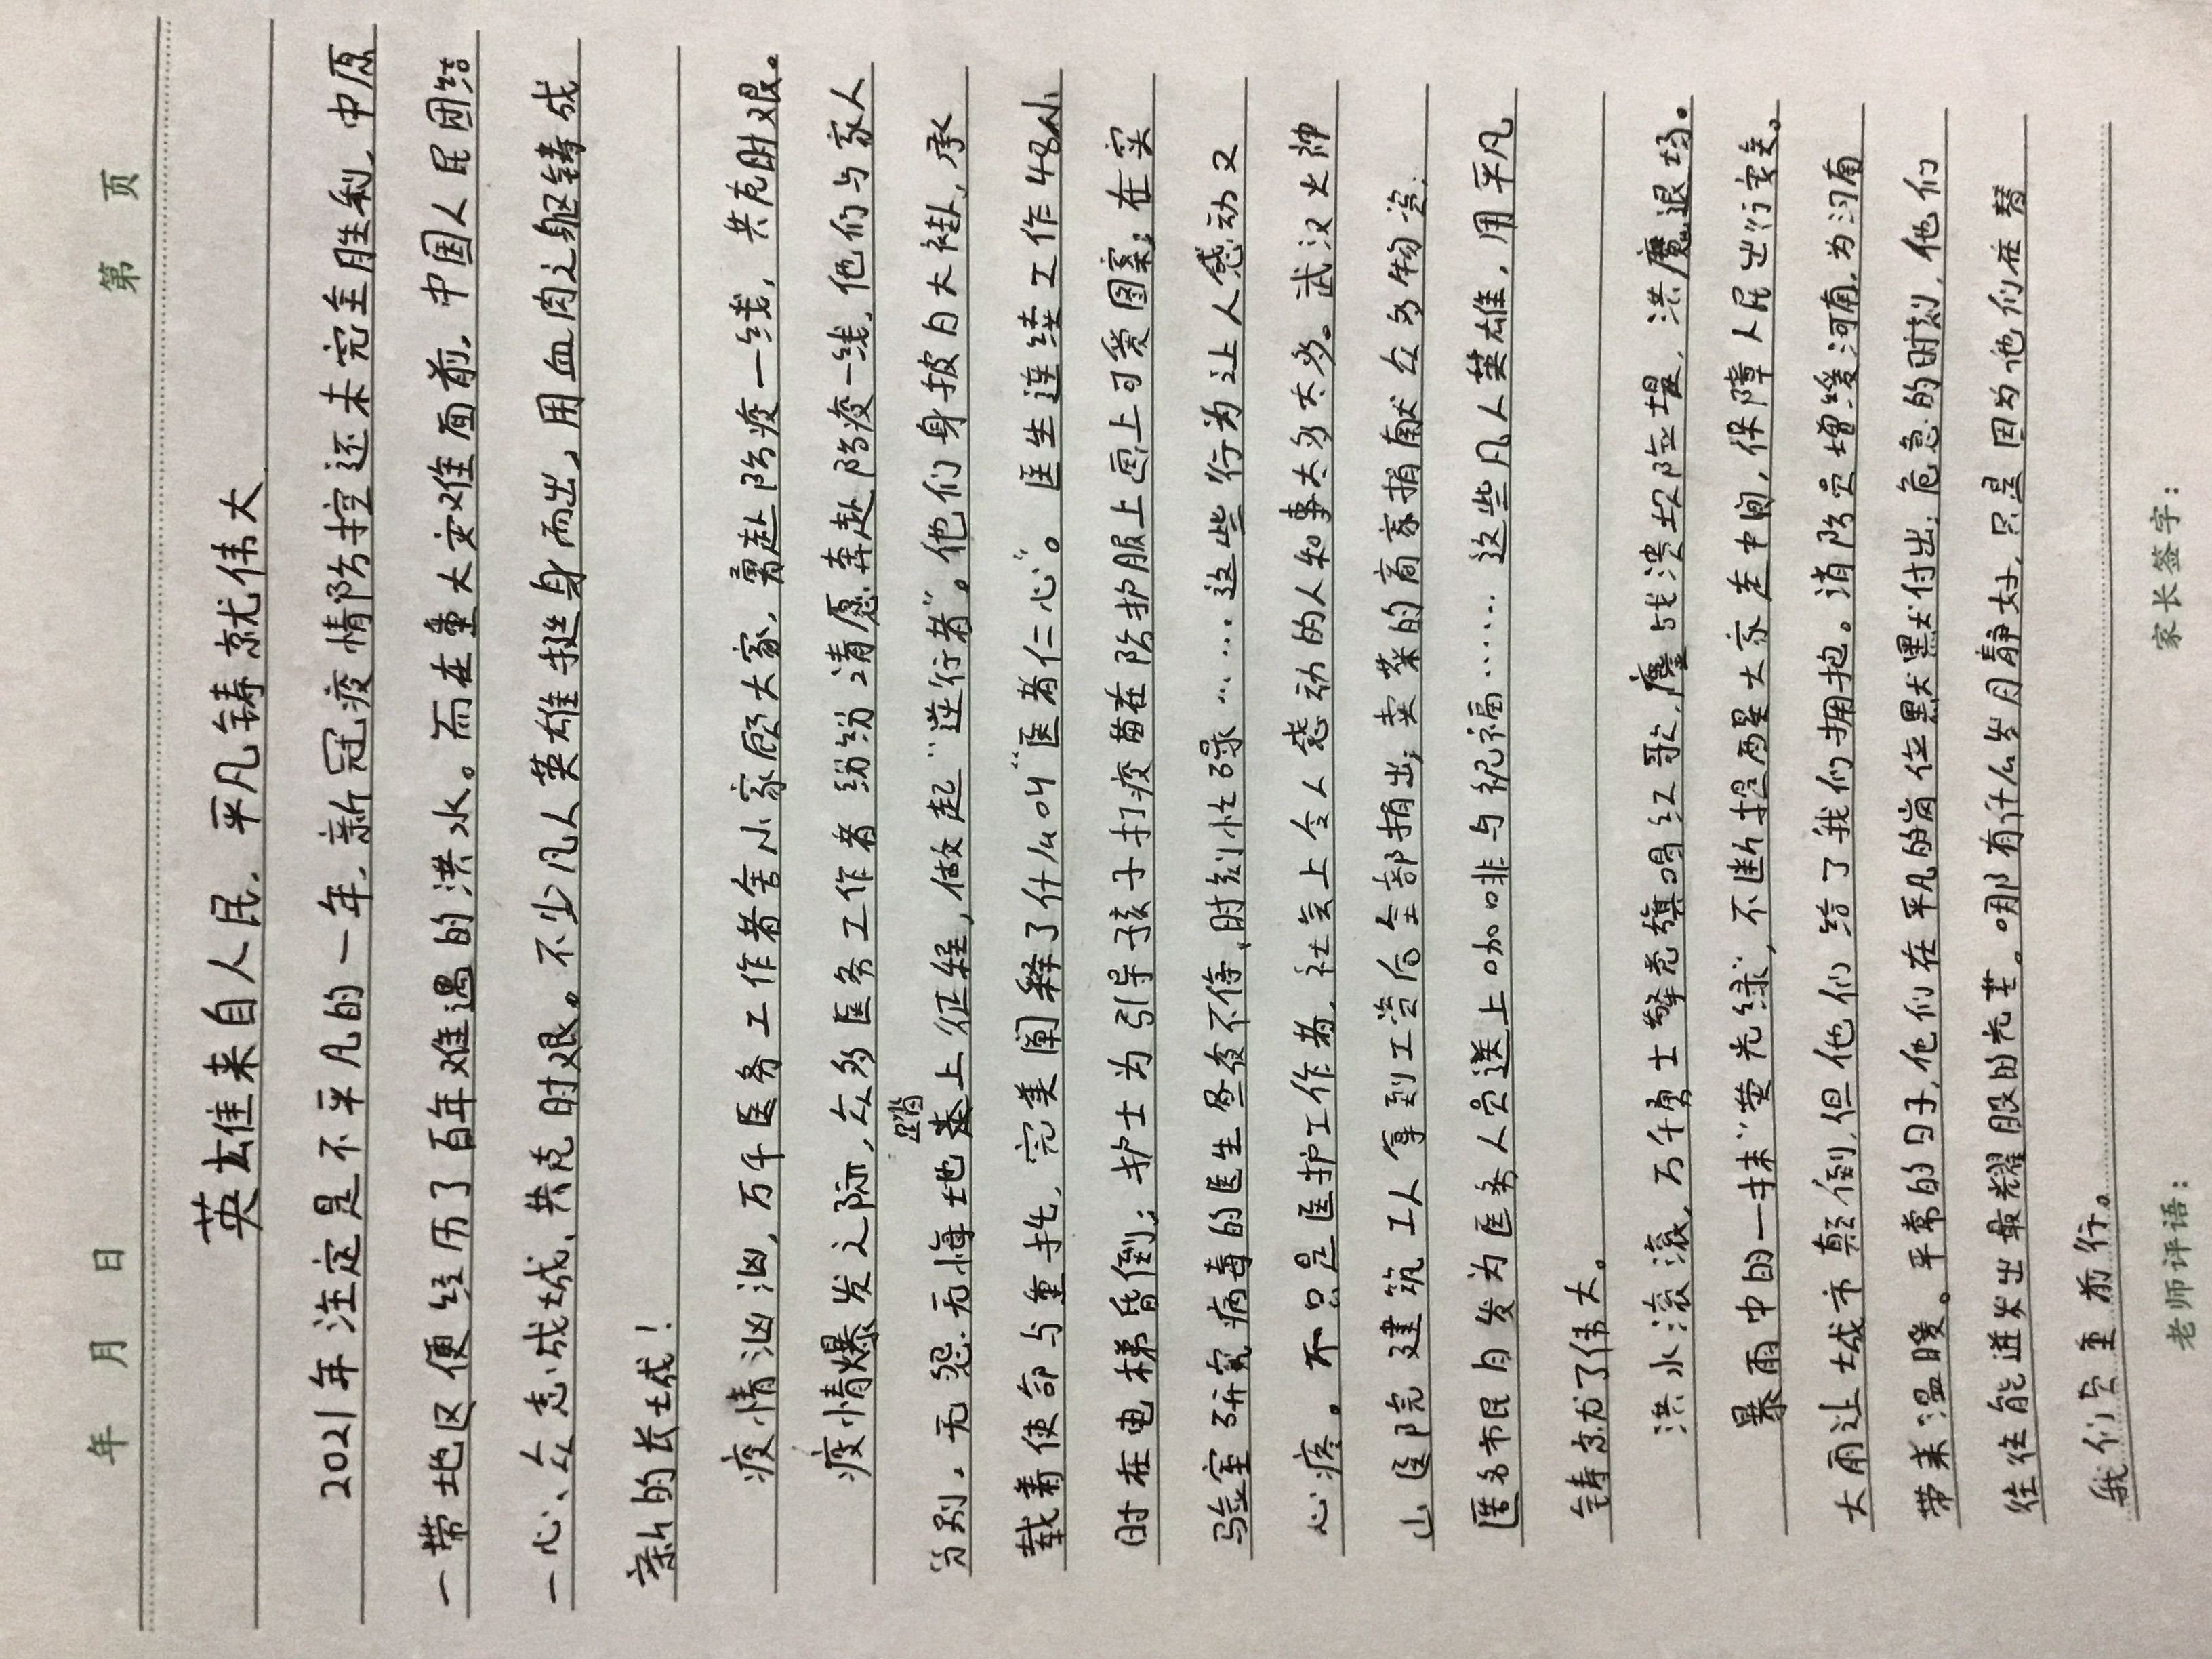 年 月 日 第 页
英雄来自人民，平凡铸就伟大
2021年注定是不平凡的一年，新冠疫情防控还未完全胜利，中原
一带地区便经历了百年难遇的洪水。而在重大灾难面前，中国人民团结
一心、众志成城、共克时艰。不少凡人英雄挺身而出，用血肉之躯铸成
新的长城！
疫情汹汹，万千医务工作者舍小家顾大家，勇赴防疫一线，共克时艰。
疫情爆发之际，众多医务工作者纷纷请愿奔赴防疫一线，他们与家人
分别，无怨无悔地踏上征程，做起“逆行者”。他们身披白大褂，承
载着使命与重托，完美阐释了什么叫“医者仁心”。医生连续工作48小
时在电梯昏倒；护士为引导孩子打疫苗在防护服上画上可爱图案；在实
验室研究病毒的医生昼夜不停，时刻忙碌……这些行为让人感动又
心疼。不只是医护工作者，社会上令人感动的人和事太多太多。武汉火神
山医院建筑工人拿到工资后全部捐出；卖菜的商家捐献众多物资，
匿名市民自发为医务人员送上咖啡与祝福……这些凡人英雄，用平凡
铸就了伟大。
洪水滚滚，万千勇士擎党旗唱红歌，鏖战溃坝险堤，洪魔退场。
暴雨中的一抹“荧光绿”，不断提醒大家走中间，保障人民出行安全。
大雨让城市颠倒，但他们给了我们拥抱。消防员增缓河南，为河南
带来温暖。平常的日子，他们在平凡的岗位默默付出；危急的时刻，他们
往往能迸发出最耀眼的光芒。哪有什么岁月静好，只是因为他们在替
我们负重前行。
老师评语： 家长签字：